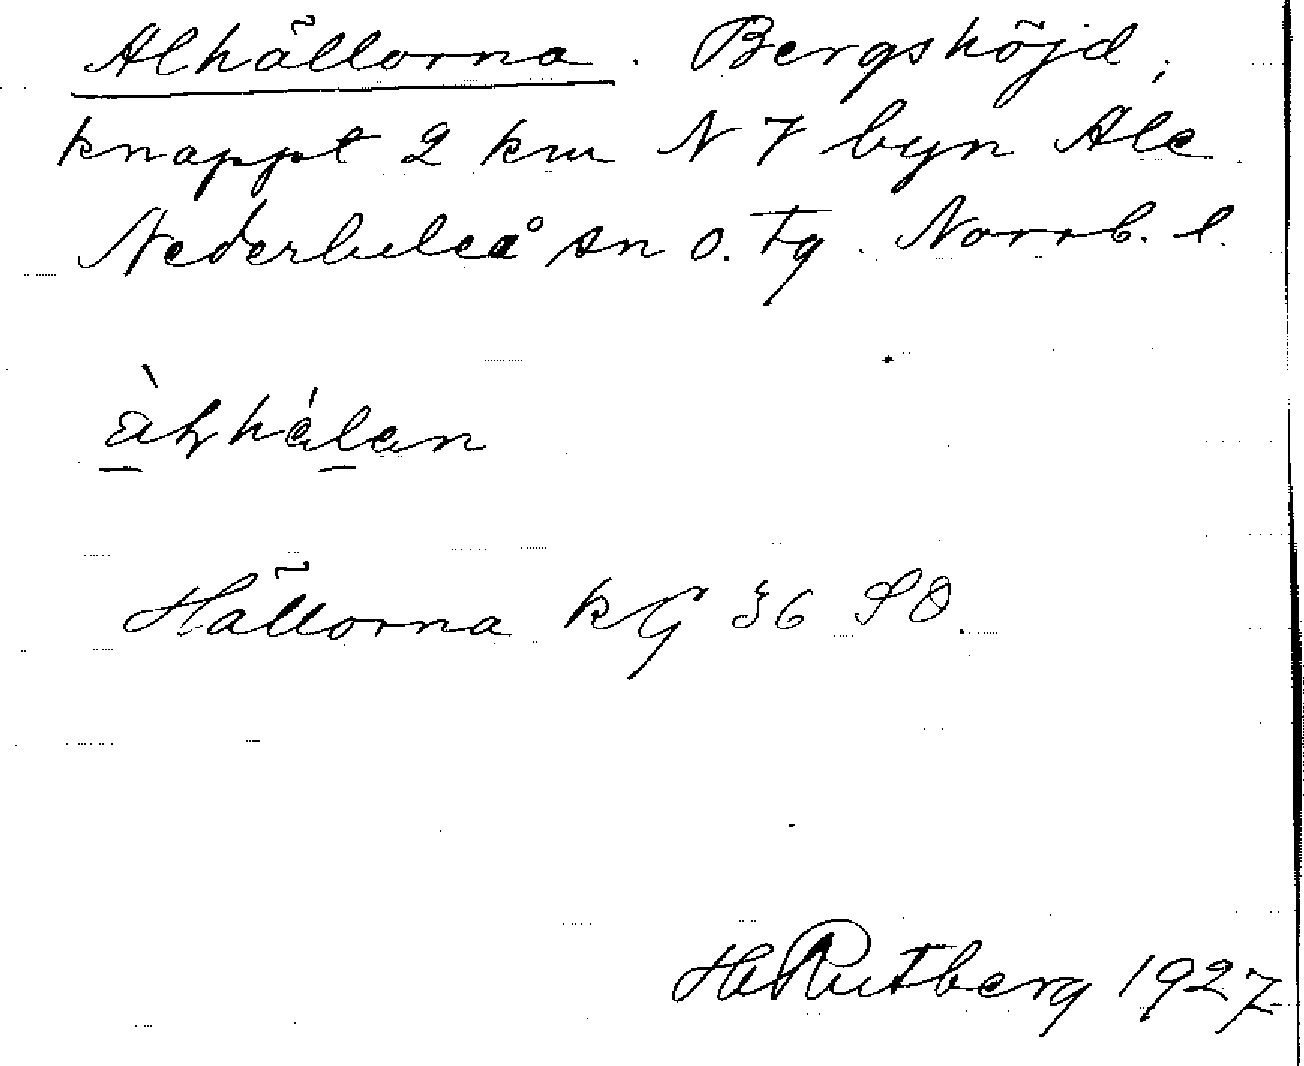 Alhällorna. Bergshöjd,
knappt 2 km N 7 byn Ale
Nederluleå sn o. tg. Norrb. l.
Hällorna kG 36 SO.
HRutberg 1927